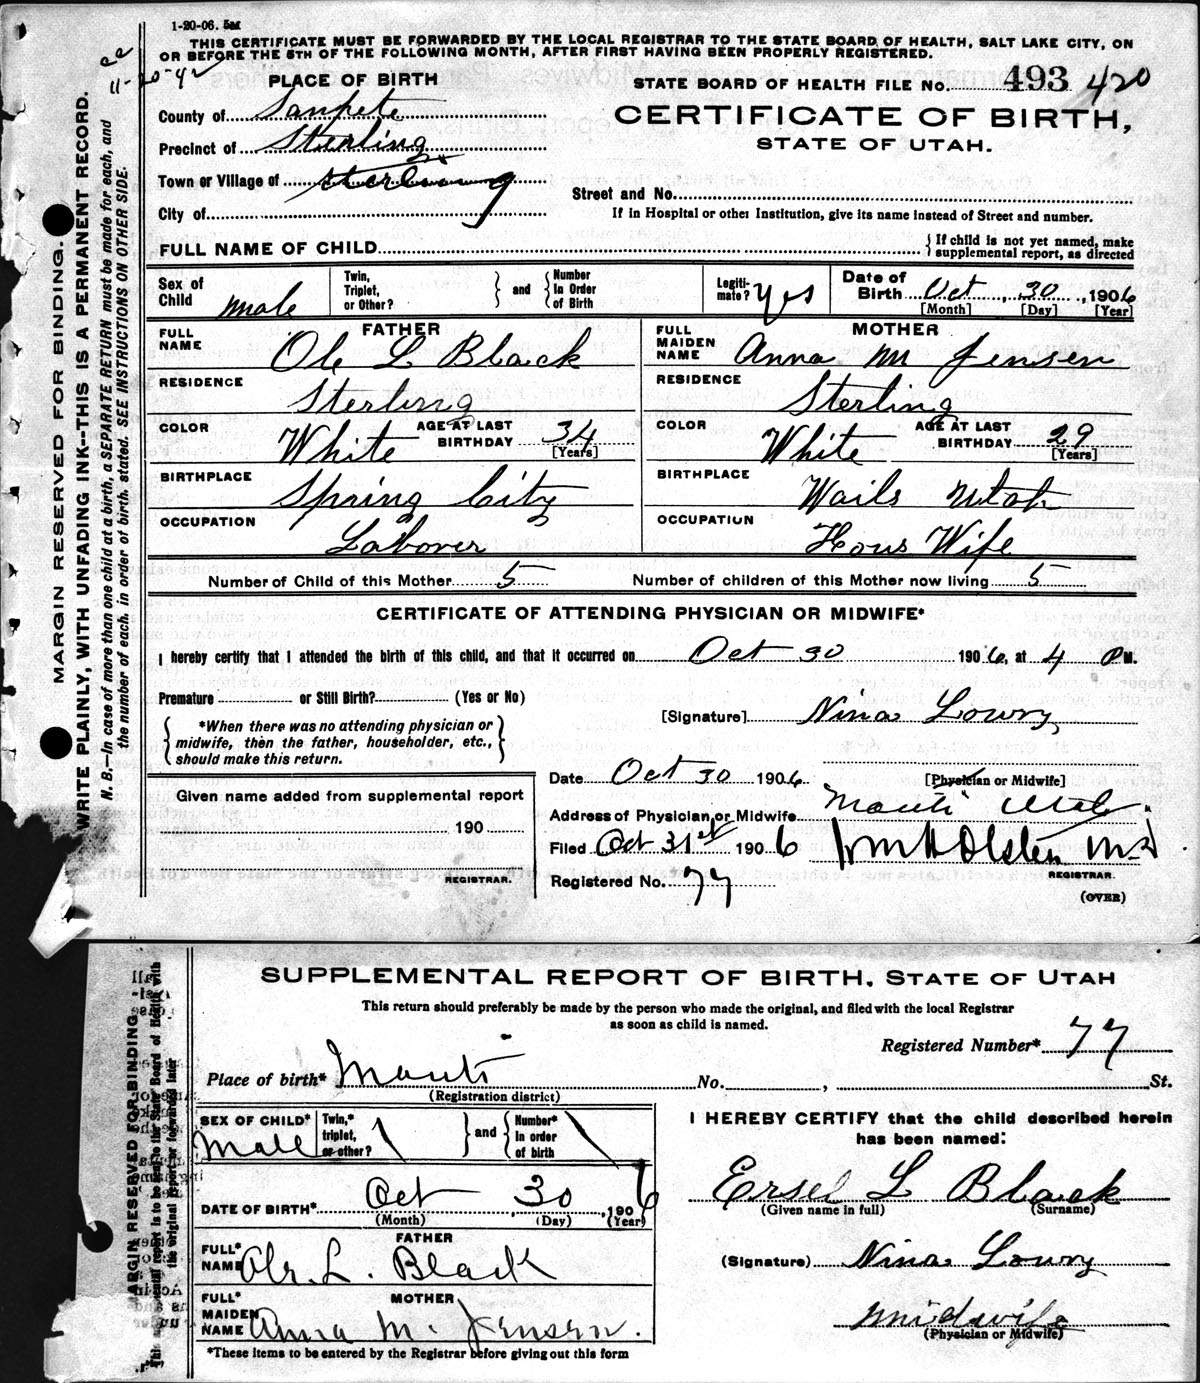 1-20-06. 5M
THIS CERTIFICATE MUST BE FORWARDED BY THE LOCAL REGISTRAR TO THE STATE BOARD OF HEALTH, SALT LAKE CITY, ON
OR BEFORE THE 5TH OF THE FOLLOWING MONTH, AFTER FIRST HAVING BEEN PROPERLY REGISTERED.
11-20-42
PLACE OF BIRTH
STATE BOARD OF HEALTH FILE No. 493 420
County of Sanpete
CERTIFICATE OF BIRTH,
Precinct of Sterling
STATE OF UTAH.
Town or Village of Sterling
Street and No.
City of
If in Hospital or other Institution, give its name instead of Street and number.
FULL NAME OF CHILD
{If child is not yet named, make supplemental report, as directed
Sex of Child male
Twin, Triplet, or Other?
} and {
Number In Order of Birth
Legiti-mate? yes
Date of Birth Oct, 30, 1906
[Month] [Day] [Year]
FATHER
FULL NAME Ole L Black
RESIDENCE Sterling
COLOR White AGE AT LAST BIRTHDAY 34 [Years]
BIRTHPLACE Spring City
OCCUPATION Laborer
MOTHER
FULL MAIDEN NAME Anna M Jensen
RESIDENCE Sterling
COLOR White AGE AT LAST BIRTHDAY 29 [Years]
BIRTHPLACE Wails Utah
OCCUPATION Hous Wife
Number of Child of this Mother 5 Number of children of this Mother now living 5
CERTIFICATE OF ATTENDING PHYSICIAN OR MIDWIFE*
I hereby certify that I attended the birth of this child, and that it occurred on Oct 30 1906, at 4 P M.
Premature or Still Birth? (Yes or No)
{*When there was no attending physician or
midwife, then the father, householder, etc.,
should make this return.}
[Signature] Nina Lowry
Date Oct 30 1906
[Physician or Midwife]
Given name added from supplemental report
190
REGISTRAR.
Address of Physician or Midwife Manti Utah
Filed Oct 31st 1906 Wm H Olsten M.D
REGISTRAR.
Registered No. 77
(OVER)
MARGIN RESERVED FOR BINDING.
WRITE PLAINLY, WITH UNFADING INK--THIS IS A PERMANENT RECORD.
N. B.—In case of more than one child at a birth, a SEPARATE RETURN must be made for each, and
the number of each, in order of birth, stated. SEE INSTRUCTIONS ON OTHER SIDE.
SUPPLEMENTAL REPORT OF BIRTH, STATE OF UTAH
This return should preferably be made by the person who made the original, and filed with the local Registrar
as soon as child is named.
Registered Number* 77
Place of birth* Manti No. , St.
(Registration district)
SEX OF CHILD* Male
Twin,* triplet, or other?
} and {
Number* In order of birth
DATE OF BIRTH* Oct 30, 1906
(Month) (Day) (Year)
FATHER
FULL* NAME Ole. L. Black
MOTHER
FULL* MAIDEN NAME Anna M. Jensen.
*These items to be entered by the Registrar before giving out this form
I HEREBY CERTIFY that the child described herein
has been named:
Ersel L Black
(Given name in full) (Surname)
(Signature) Nina Lowry
midwife
(Physician or Midwife)
MARGIN RESERVED FOR BINDING
This supplemental report is to be sent to the State Board of Health with
the original report or forwarded later